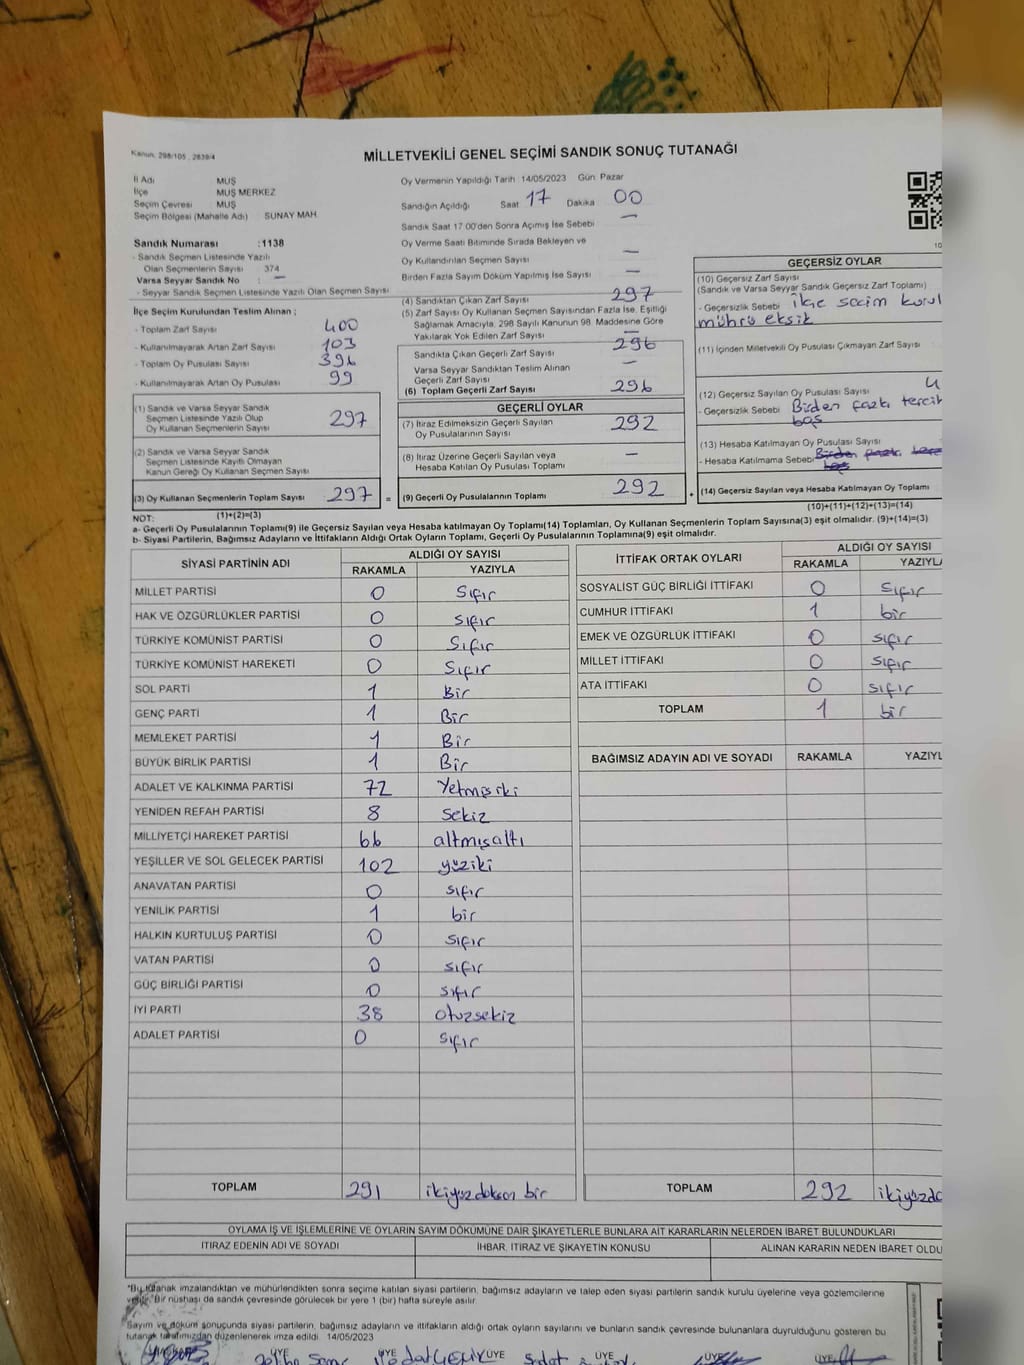 Kanun: 298/105 , 2839/4
MİLLETVEKİLİ GENEL SEÇİMİ SANDIK SONUÇ TUTANAĞI
İl Adı MUŞ
İlçe MUŞ MERKEZ
Seçim Çevresi : MUŞ
Seçim Bölgesi (Mahalle Adı) SUNAY MAH.
Sandık Numarası :1138
- Sandık Seçmen Listesinde Yazılı
Olan Seçmenlerin Sayısı 374
Varsa Seyyar Sandık No : —
- Seyyar Sandık Seçmen Listesinde Yazılı Olan Seçmen Sayısı
İlçe Seçim Kurulundan Teslim Alınan ;
- Toplam Zarf Sayısı 400
- Kullanılmayarak Artan Zarf Sayısı 103
- Toplam Oy Pusulası Sayısı 396
- Kullanılmayarak Artan Oy Pusulası 99
(1) Sandık ve Varsa Seyyar Sandık
Seçmen Listesinde Yazılı Olup
Oy Kullanan Seçmenlerin Sayısı 297
(2) Sandık ve Varsa Seyyar Sandık
Seçmen Listesinde Kayıtlı Olmayan
Kanun Gereği Oy Kullanan Seçmen Sayısı
(3) Oy Kullanan Seçmenlerin Toplam Sayısı 297 =
(1)+(2)=(3)
Oy Vermenin Yapıldığı Tarih: 14/05/2023 Gün: Pazar
Sandığın Açıldığı Saat 17 Dakika 00
Sandık Saat 17:00'den Sonra Açımış İse Sebebi —
Oy Verme Saati Bitiminde Sırada Bekleyen ve
Oy Kullandırılan Seçmen Sayısı —
Birden Fazla Sayım Döküm Yapılmış İse Sayısı —
(4) Sandıktan Çıkan Zarf Sayısı 297
(5) Zarf Sayısı Oy Kullanan Seçmen Sayısından Fazla İse, Eşitliği
Sağlamak Amacıyla, 298 Sayılı Kanunun 98. Maddesine Göre
Yakılarak Yok Edilen Zarf Sayısı —
Sandıkta Çıkan Geçerli Zarf Sayısı 296
Varsa Seyyar Sandıktan Teslim Alınan
Geçerli Zarf Sayısı —
(6) Toplam Geçerli Zarf Sayısı 296
GEÇERLİ OYLAR
(7) İtiraz Edilmeksizin Geçerli Sayılan
Oy Pusulalarının Sayısı 292
(8) İtiraz Üzerine Geçerli Sayılan veya
Hesaba Katılan Oy Pusulası Toplamı —
(9) Geçerli Oy Pusulalarının Toplamı 292 +
GEÇERSİZ OYLAR
(10) Geçersiz Zarf Sayısı
(Sandık ve Varsa Seyyar Sandık Geçersiz Zarf Toplamı)
- Geçersizlik Sebebi ilçe seçim kurul
mührü eksik
(11) İçinden Milletvekili Oy Pusulası Çıkmayan Zarf Sayısı
(12) Geçersiz Sayılan Oy Pusulası Sayısı 4
- Geçersizlik Sebebi Birden fazla tercih
boş
(13) Hesaba Katılmayan Oy Pusulası Sayısı
- Hesaba Katılmama Sebebi Birden fazla terc
boş
(14) Geçersiz Sayılan veya Hesaba Katılmayan Oy Toplamı
(10)+(11)+(12)+(13)=(14)
NOT:
a- Geçerli Oy Pusulalarının Toplamı(9) ile Geçersiz Sayılan veya Hesaba katılmayan Oy Toplamı(14) Toplamları, Oy Kullanan Seçmenlerin Toplam Sayısına(3) eşit olmalıdır. (9)+(14)=(3)
b- Siyasi Partilerin, Bağımsız Adayların ve İttifakların Aldığı Ortak Oyların Toplamı, Geçerli Oy Pusulalarının Toplamına(9) eşit olmalıdır.
SİYASİ PARTİNİN ADI ALDIĞI OY SAYISI
RAKAMLA YAZIYLA
MİLLET PARTİSİ 0 Sıfır
HAK VE ÖZGÜRLÜKLER PARTİSİ 0 Sıfır
TÜRKİYE KOMÜNİST PARTİSİ 0 Sıfır
TÜRKİYE KOMÜNİST HAREKETİ 0 Sıfır
SOL PARTİ 1 Bir
GENÇ PARTİ 1 Bir
MEMLEKET PARTİSİ 1 Bir
BÜYÜK BİRLİK PARTİSİ 1 Bir
ADALET VE KALKINMA PARTİSİ 72 Yetmişiki
YENİDEN REFAH PARTİSİ 8 sekiz
MİLLİYETÇİ HAREKET PARTİSİ 66 altmışaltı
YEŞİLLER VE SOL GELECEK PARTİSİ 102 yüziki
ANAVATAN PARTİSİ 0 sıfır
YENİLİK PARTİSİ 1 bir
HALKIN KURTULUŞ PARTİSİ 0 sıfır
VATAN PARTİSİ 0 sıfır
GÜÇ BİRLİĞİ PARTİSİ 0 sıfır
İYİ PARTİ 38 otuzsekiz
ADALET PARTİSİ 0 sıfır
TOPLAM 291 ikiyüzdoksan bir
İTTİFAK ORTAK OYLARI ALDIĞI OY SAYISI
RAKAMLA YAZIYLA
SOSYALİST GÜÇ BİRLİĞİ İTTİFAKI 0 Sıfır
CUMHUR İTTİFAKI 1 bir
EMEK VE ÖZGÜRLÜK İTTİFAKI 0 sıfır
MİLLET İTTİFAKI 0 sıfır
ATA İTTİFAKI 0 sıfır
TOPLAM 1 bir
BAĞIMSIZ ADAYIN ADI VE SOYADI RAKAMLA YAZIYL
TOPLAM 292 ikiyüzdo
OYLAMA İŞ VE İŞLEMLERİNE VE OYLARIN SAYIM DÖKÜMÜNE DAİR ŞİKAYETLERLE BUNLARA AİT KARARLARIN NELERDEN İBARET BULUNDUKLARI
İTİRAZ EDENİN ADI VE SOYADI İHBAR, İTİRAZ VE ŞİKAYETİN KONUSU ALINAN KARARIN NEDEN İBARET OLDU
*Bu tutanak imzalandıktan ve mühürlendikten sonra seçime katılan siyasi partilerin, bağımsız adayların ve talep eden siyasi partilerin sandık kurulu üyelerine veya gözlemcilerine
verilir. Bir nüshası da sandık çevresinde görülecek bir yere 1 (bir) hafta süreyle asılır.
Sayım ve döküm sonuçunda siyasi partilerin, bağımsız adayların ve ittifakların aldığı ortak oyların sayılarını ve bunların sandık çevresinde bulunanlara duyrulduğunu gösteren bu
tutanak tarafımızdan düzenlenerek imza edildi. 14/05/2023
ÜYE ÜYE ÜYE ÜYE ÜYE ÜYE